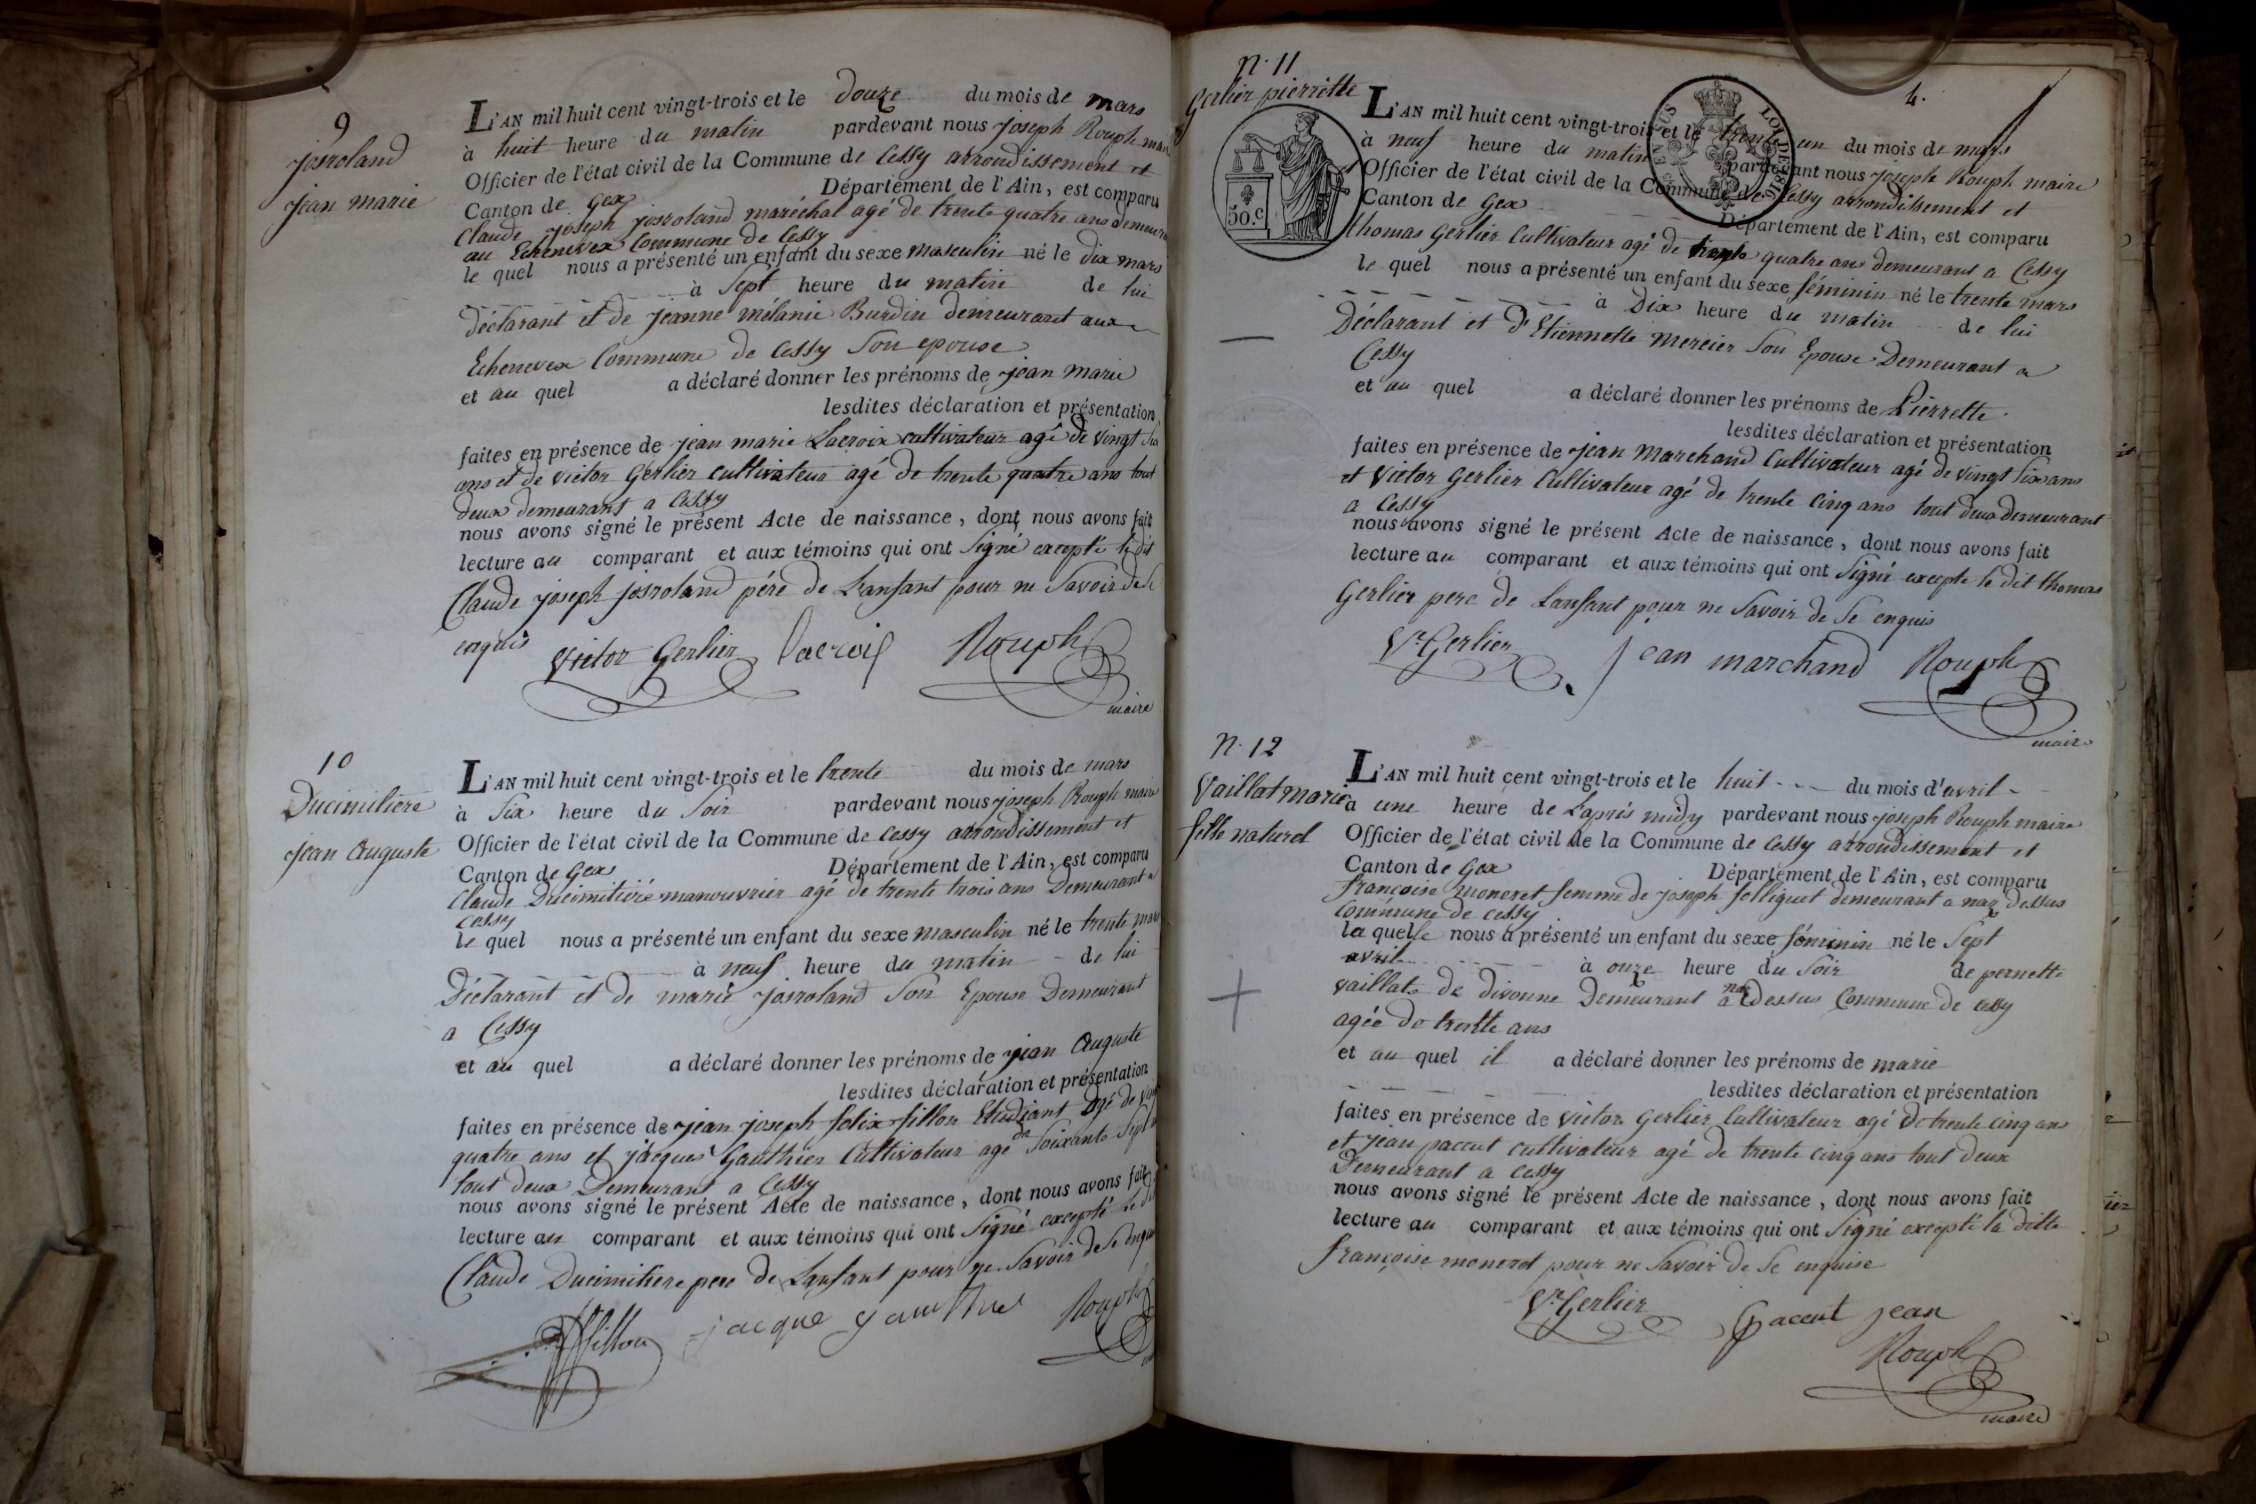 9
josroland
jean marie
L'AN mil huit cent vingt-trois et le douze du mois de mars
à huit heure du matin pardevant nous joseph Rouph
Officier de l'état civil de la Commune de Cessy arrondissement et
Canton de Gex Département de l'Ain, est comparu
Claude joseph josroland maréchal agé de trente quatre ans
au Echenevex Commune de Cessy
le quel nous a présenté un enfant du sexe masculin né le dix mars
à sept heure du matin de lui
Déclarant et de jeanne mélanie Burdin demeurant aux
Echenevex Commune de Cessy son epouse
et au quel a déclaré donner les prénoms de jean marie
lesdites déclaration et présentation
faites en présence de jean marie Lacroix cultivateur agé de vingt
ans et de victor Gerlier cultivateur agé de trente quatre ans tout
deux demeurant a Cessy
nous avons signé le présent Acte de naissance, dont nous avons fait
lecture au comparant et aux témoins qui ont signé excepté le dit
Claude joseph josroland père de Lanfant pour ne savoir de
enquis
victor Gerlier Lacroix Rouph
maire
10
Ducimitiere
jean Auguste
L'AN mil huit cent vingt-trois et le trente du mois de mars
à six heure du soir pardevant nous joseph Rouph maire
Officier de l'état civil de la Commune de Cessy arrondissement et
Canton de Gex Département de l'Ain, est comparu
Claude Ducimitière manouvrier agé de trente trois ans Demeurant a
Cessy
le quel nous a présenté un enfant du sexe masculin né le trente mars
à neuf heure du matin de lui
Déclarant et de marie josroland son Epouse Demeurant
a Cessy
et au quel a déclaré donner les prénoms de jean Auguste
lesdites déclaration et présentation
faites en présence de jean joseph felix fillon Etudiant agé de
quatre ans et jacques Gauthier Cultivateur agé de soixante sept
tout deux Demeurant a Cessy
nous avons signé le présent Acte de naissance, dont nous avons fait
lecture au comparant et aux témoins qui ont signé excepté le
Claude Ducimitiere pere de Lanfant pour ne savoir de se
fillon jacque gauthie Rouph
n. 11
4.
Gerlier pierrette
L'AN mil huit cent vingt-trois et le trente un du mois de mars
à neuf heure du matin pardevant nous joseph Rouph maire
Officier de l'état civil de la Commune de Cessy arrondissement et
Canton de Gex Département de l'Ain, est comparu
thomas Gerlier Cultivateur agé de trente quatre ans demeurant a Cessy
le quel nous a présenté un enfant du sexe féminin né le trente mars
à Dix heure du matin de lui
Déclarant et d'Etiennette mercier son Epouse Demeurant a
Cessy
et au quel a déclaré donner les prénoms de Pierrette.
lesdites déclaration et présentation
faites en présence de jean Marchand Cultivateur agé de vingt six ans
et Victor Gerlier Cultivateur agé de trente cinq ans tout deux demeurant
a Cessy
nous avons signé le présent Acte de naissance, dont nous avons fait
lecture au comparant et aux témoins qui ont signé excepte le dit thomas
Gerlier pere de Lanfant pour ne savoir de se enquis
Vr Gerlier jean marchand Rouph
maire
50.c
n. 12
Vaillat marie
fille naturel
L'AN mil huit cent vingt-trois et le huit du mois d'avril
à une heure de Laprès midy pardevant nous joseph Rouph maire
Officier de l'état civil de la Commune de Cessy arrondissement et
Canton de Gex Département de l'Ain, est comparu
françoise moneret femme de joseph felliquet demeurant a naz dessus
Commune de cessy
la quelle nous a présenté un enfant du sexe féminin né le sept
avril à onze heure du soir de pernette
vaillat de divonne Demeurant a naz Dessus Commune de cessy
agée de trente ans
et au quel il a déclaré donner les prénoms de marie
lesdites déclaration et présentation
faites en présence de victor Gerlier Cultivateur agé de trente cinq ans
et jean paccut cultivateur agé de trente cinq ans tout deux
Demeurant a Cessy
nous avons signé le présent Acte de naissance, dont nous avons fait
lecture au comparant et aux témoins qui ont signé excepté la ditte
françoise moneret pour ne savoir de se enquise
Vr Gerlier paccut jean
Rouph
maire